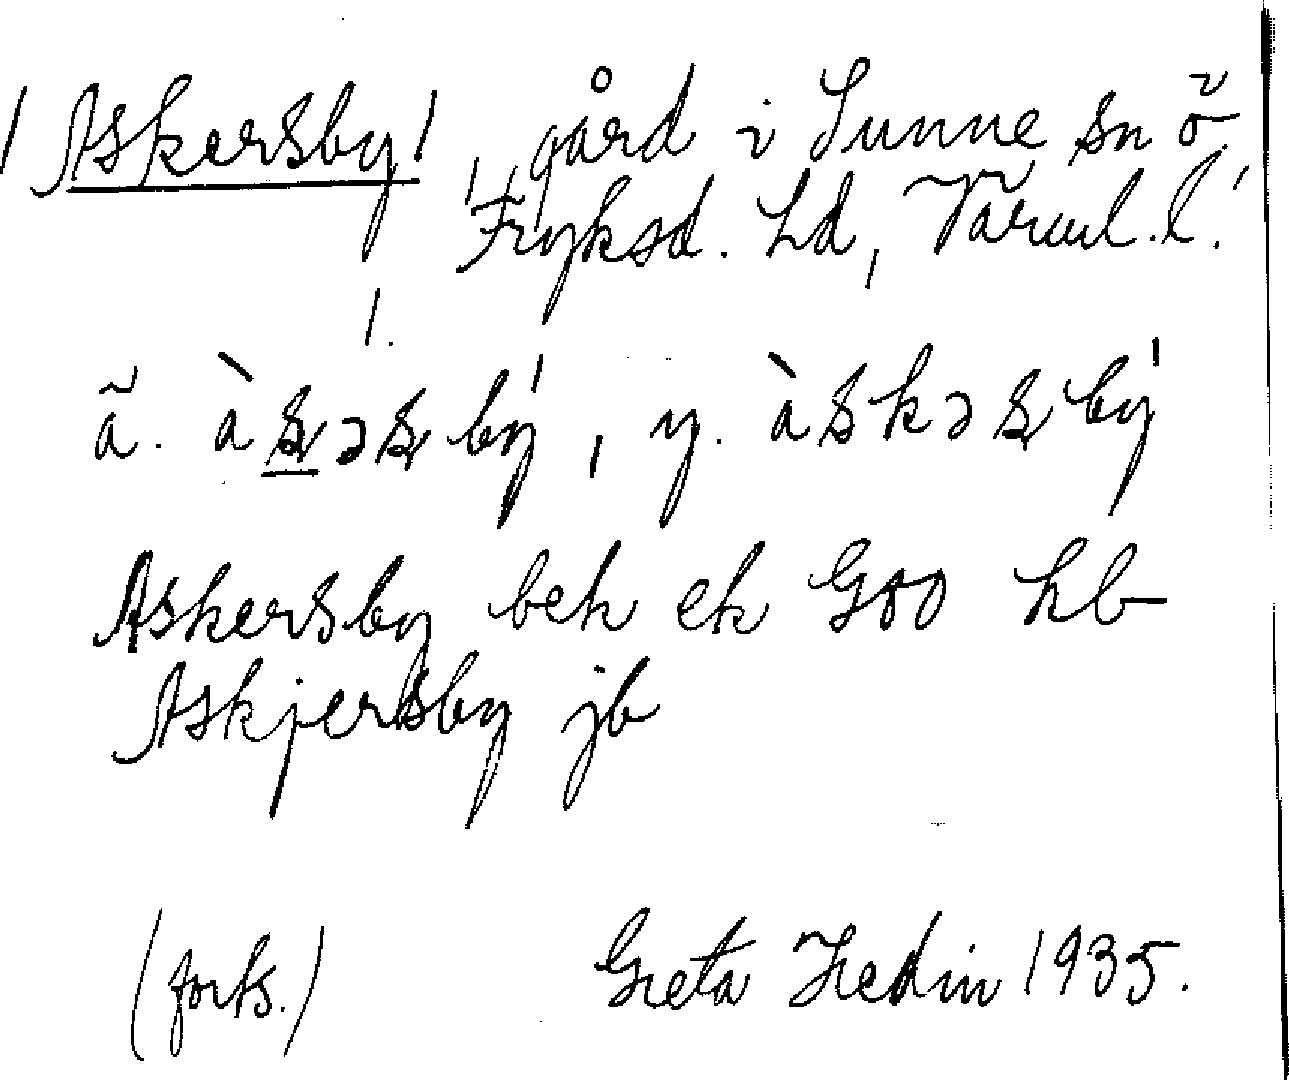 Askersby, gård i Sunne sn ö.
Fryksd. hd, Värml. l.
ä. by, y.
Askersby beh ek Goo hb
Askjersby jb
(forts.) Greta Hedin 1935.